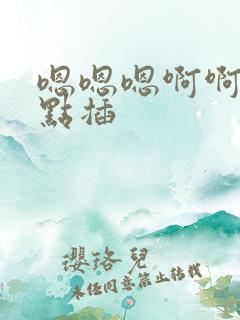 嗯嗯嗯啊啊
點插
瓔珞兒
未经同意禁止转载